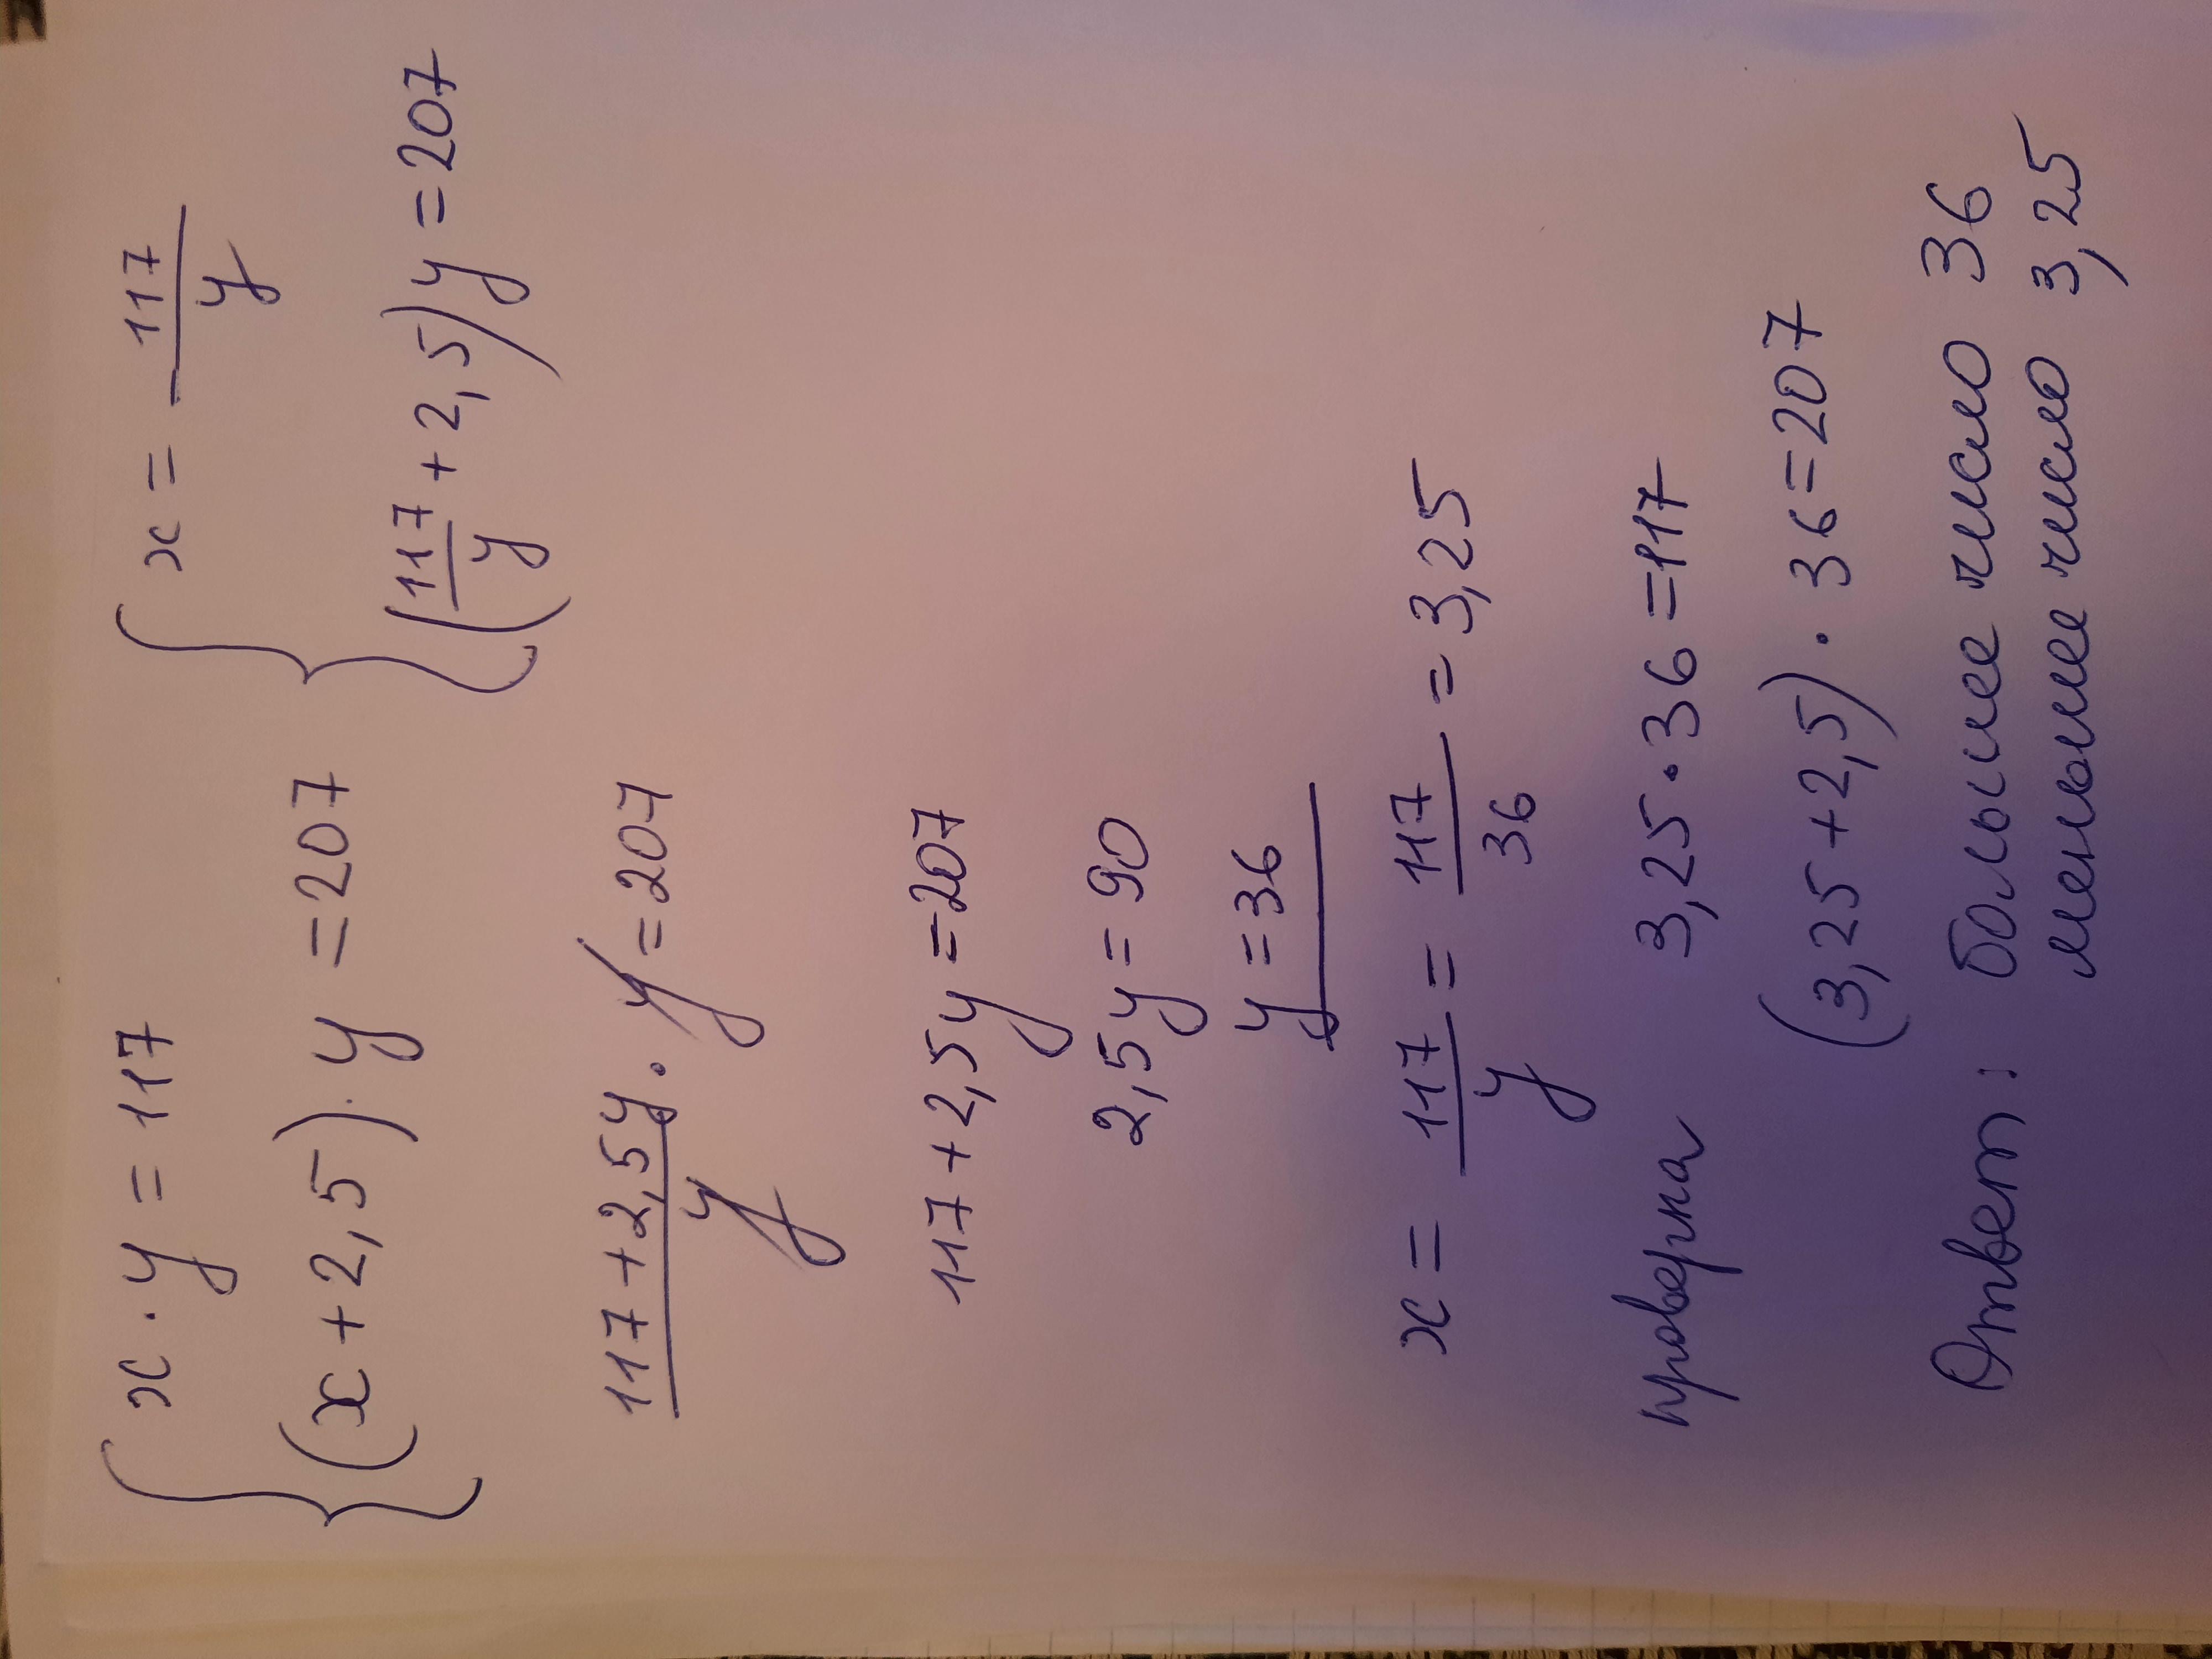 x · y = 117
(x + 2,5) · y = 207
x = 117/y
(117/y + 2,5) y = 207
117 + 2,5y/y · y = 207
117 + 2,5y = 207
2,5y = 90
y = 36
x = 117/y = 117/36 = 3,25
проверка 3,25 · 36 = 117
(3,25 + 2,5) · 36 = 207
Ответ: большее число 36
меньшее число 3,25